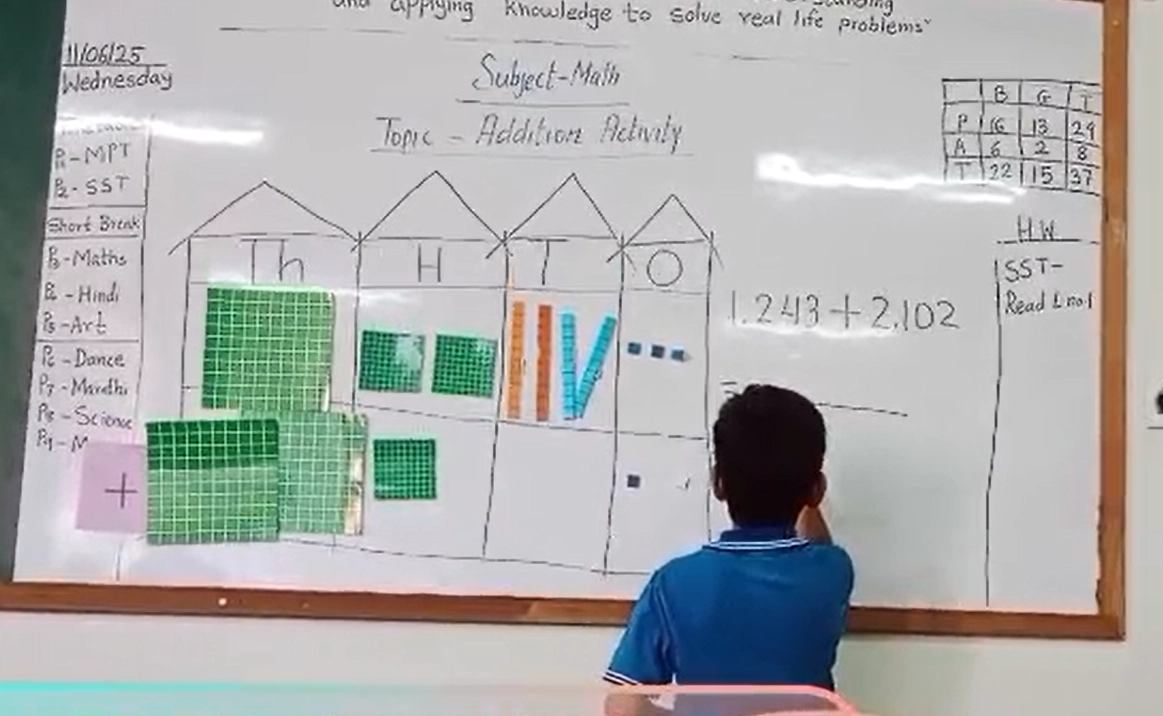 and applying knowledge to solve real life problems"
11/06/25
Wednesday
Subject-Math
Topic - Addition Activity
P1-MPT
P2-SST
Short Break
P3-Maths
P4-Hindi
P5-Art
P6-Dance
P7-Marathi
P8-Science
P9-M
Th H T O
+
1,243+2,102
=
B G T
P 16 13 29
A 6 2 8
T 22 15 37
H.W
SST-
Read L no.1